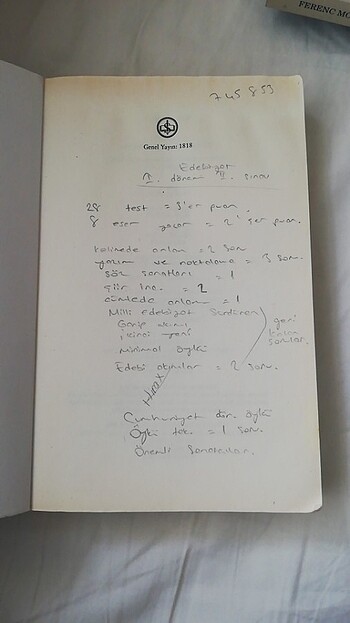 FERENC MO
745 853
Genel Yayın: 1818
Edebiyat
I. dönem II. sınav
28 test = 3'er puan
8 eser yazar = 2'şer puan.
kelimede anlam = 2 soru
yazım ve noktalama = 3 soru.
söz sanatları = 1
şiir inc. = 2
cümlede anlam = 1
Milli Edebiyat Sürdüren
Garip akımı
ikinci yeni
minimal öykü
geri
kalan
sorular.
Edebi akımlar = 2 soru.
Cumhuriyet dön. öykü
Öykü tek. = 1 soru.
Önemli Sanatçılar.